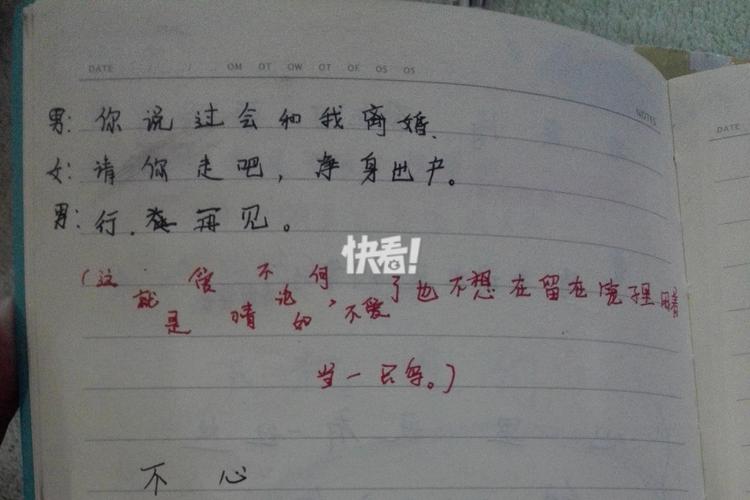 DATE OM OT OW OT OF OS OS
NOTES
男: 你说过会和我离婚.
女: 请你走吧，净身出户。
男: 行. 再见。
快看!
(这就是爱情不论的何，不爱了也不想在留在笼子里
当一只鸟。)
不 心
DATE